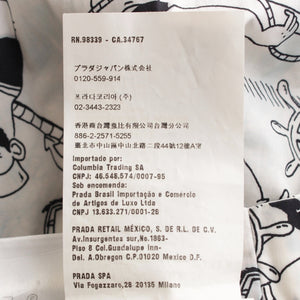 RN.98339 - CA.34767
プラダジャパン株式会社
0120-559-914
프라다코리아 (주)
02-3443-2323
886-2-2571-5255
Importado por:
Columbia Trading SA
CNPJ: 46.548.574/0007-95
Sob encomenda:
Prada Brasil Importação e Comércio
de Artigos de Luxo Ltda
CNPJ 13.633.271/0001-26
PRADA RETAIL MÉXICO, S. DE R.L. DE C.V.
Av.Insurgentes sur No.1863-
Piso 8 Col.Guadalupe Inn-
Del. A.Obregon C.P.01020 Mexico D.F.
PRADA SPA
Via Fogazzaro,28 20135 Milano